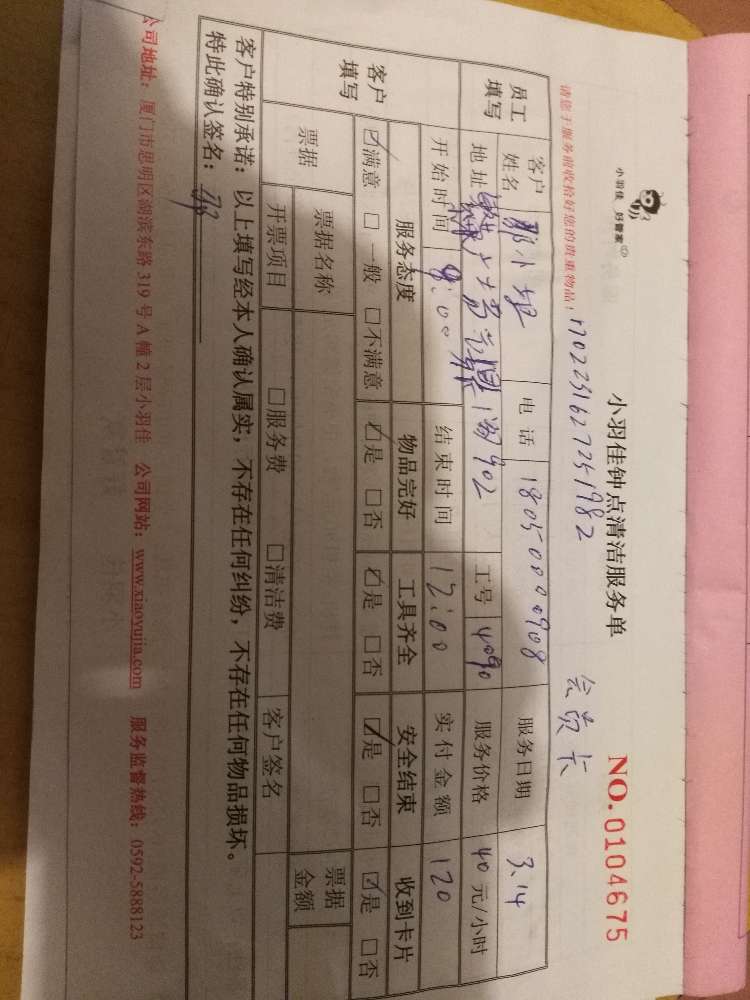 小羽佳 好管家
小羽佳钟点清洁服务单
NO.0104675
请您于服务前收拾好您的贵重物品!
1702231627251982
会员卡
员工填写
客户姓名 那小姐 电话 18050000908 服务日期 3.14
地址 902 工号 4090 服务价格 40 元/小时
开始时间 9:00 结束时间 12:00 实付金额 120
客户填写
服务态度 物品完好 工具齐全 安全结束 收到卡片
☑满意 □一般 □不满意 ☑是 □否 ☑是 □否 ☑是 □否 ☑是 □否
票据 票据名称 票据金额
开票项目 □服务费 □清洁费 客户签名
客户特别承诺:以上填写经本人确认属实,不存在任何纠纷,不存在任何物品损坏。
特此确认签名:
公司地址:厦门市思明区湖滨东路319号A幢2层小羽佳 公司网站:www.xiaoyujia.com 服务监督热线:0592-5888123